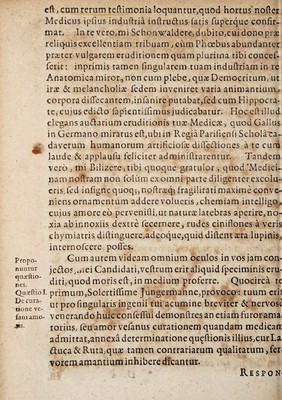 est, cum rerum testimonia loquantur, quod hortus noster
Medicus ipsius industriâ instructus satis superque confir-
mat. In te vero, mi Schonwaldere, dubito, cui dono præ
reliquis excellentiam tribuam, cùm Phœbus abundanter
præter vulgarem eruditionem quam plurima tibi conces-
serit: imprimis tamen singularem tuam industriam in re
Anatomica miror, non cum plebe, quæ Democritum, ut
iræ & melancholiæ sedem inveniret varia animantium
corpora dissecantem, insanire putabat, sed cum Hippocra-
te, cujus edicto sapientissimus judicabatur. Hoc est illud
elegans auctarium eruditionis tuæ Medicæ, quod Gallus
in Germano miratus est, ubi in Regiâ Parisiensi Scholâ ca-
daverum humanorum artificiosæ dissectiones à te cum
laude & applausu feliciter administrarentur. Tandem
verò, mi Bilizere, tibi quoque gratulor, quòd Medici-
nam nostram non solùm ex omni parte diligenter excolu-
eris, sed insigne quoq;, nostræq; fragilitati maximè conve-
niens ornamentum addere volueris, chemiam intelligo,
cujus amore eò pervenisti, ut naturæ latebras aperire, no-
xia ab innoxiis dextrè secernere, rudes ciniflones à veris
chymiatris distinguere, adeoque, quid distent æra lupinis,
internoscere posses.
Cum autem videam omnium oculos in vos jam con-
Propo-
nuntur
quæstio-
nes.
jectos, Candidati, vestrum erit aliquid speciminis eru-
diti, quod moris est, in medium proferre. Quocircà te
Quæstio I.
De cura-
tione ve-
sani amo-
ris.
primum, Solertissime Jungermanne, provoco: tuum erit
ut pro singularis ingenii tui acumine breviter & nervosè
venerando huic consessui demonstres an etiam furor ama-
torius, seu amor vesanus curationem quandam medicam
admittat, annexâ determinatione quæstionis illius, cur La-
ctuca & Ruta, quæ tamen contrariarum qualitatum, fer-
vorem amantium inhibere dicantur.
RESPON-